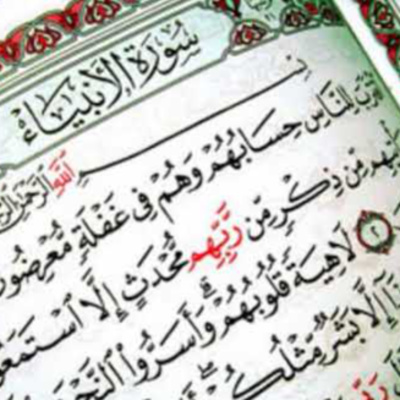 سُورَةُ الْأَنْبِيَاءِ
بِسْمِ اللَّهِ الرَّحْمَٰنِ
لِلنَّاسِ حِسَابُهُمْ وَهُمْ فِي غَفْلَةٍ مُّعْرِضُونَ
مِّن ذِكْرٍ مِّن رَّبِّهِم مُّحْدَثٍ إِلَّا ٱسْتَمَعُ
٢ لَاهِيَةً قُلُوبُهُمْ وَأَسَرُّوا۟ ٱلنَّجْ
إِلَّا بَشَرٌ مِّثْلُكُمْ